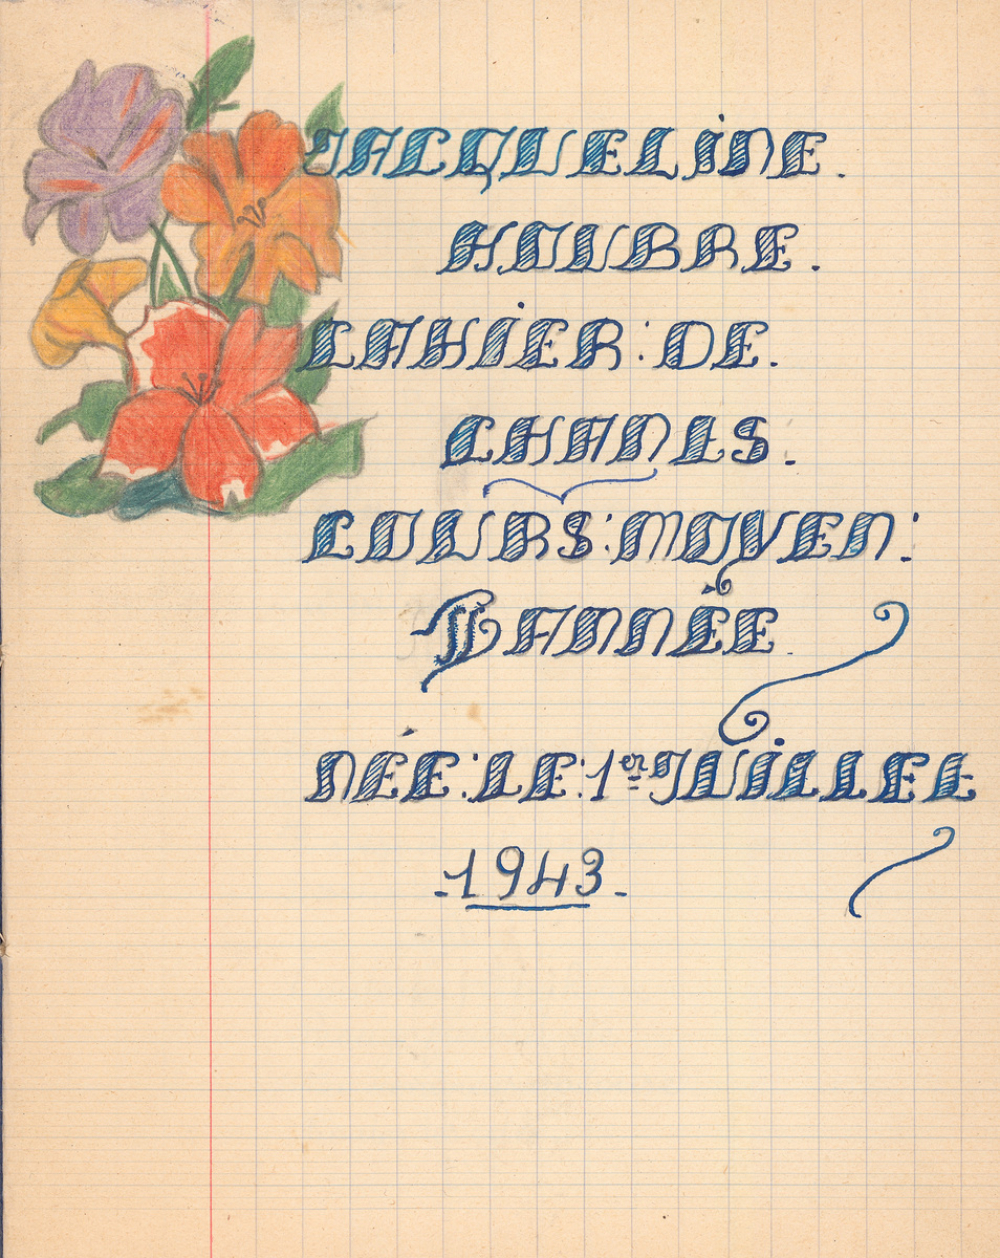 JACQUELINE.
HOUBRE.
CAHIER : DE.
CHANTS.
COURS : MOYEN :
II ANNÉE.
NÉE : LE : 1er JUILLET
-1943-